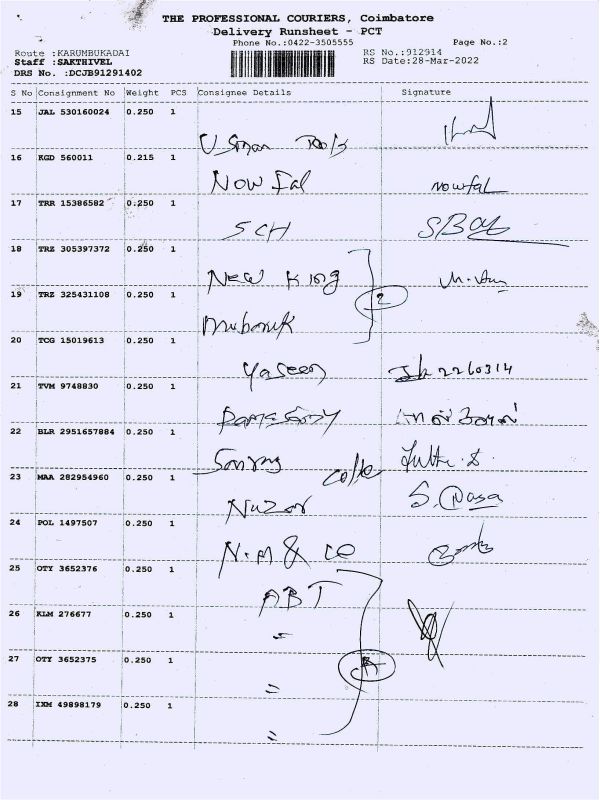 THE PROFESSIONAL COURIERS, Coimbatore
Delivery Runsheet - PCT
Phone No.:0422-3505555 Page No.:2
Route :KARUMBUKADAI RS No.:912914
Staff :SAKTHIVEL RS Date:28-Mar-2022
DRS No. :DCJB91291402
S No Consignment No Weight PCS Consignee Details Signature
15 JAL 530160024 0.250 1
Usman
16 KGD 560011 0.215 1
Now Fal nowfal
17 TRR 15386582 0.250 1
SCH
18 TRZ 305397372 0.250 1
New King
2
19 TRZ 325431108 0.250 1
Mubarak
20 TCG 15019613 0.250 1
Yaseen 2260314
21 TVM 9748830 0.250 1
22 BLR 2951657884 0.250 1
23 MAA 282954960 0.250 1
Nazar
24 POL 1497507 0.250 1
N.M & Co
25 OTY 3652376 0.250 1
ABT
26 KLM 276677 0.250 1
=
27 OTY 3652375 0.250 1
=
28 IXM 49898179 0.250 1
=